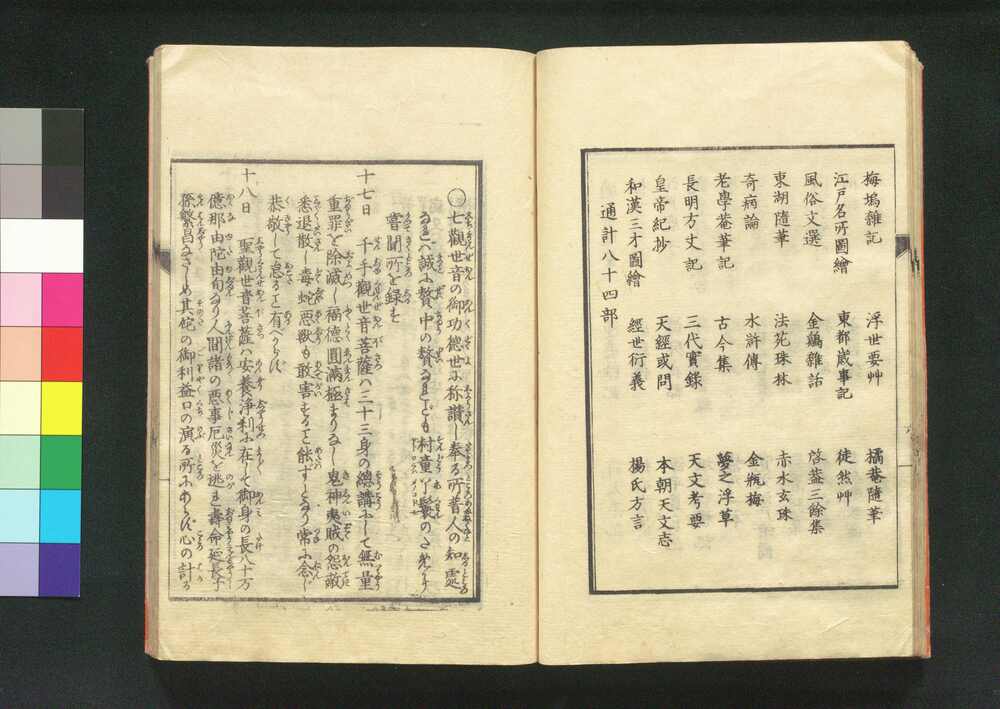 梅塢雜記　浮世要艸　橘菴隨筆
江戸名所圖繪　東都歳事記　徒然艸
風俗文選　金鷄雜話　啓蓋三餘集
東湖隨筆　法苑珠林　赤水玄珠
奇病論　水滸傳　金瓶梅
老學菴筆記　古今集　夢之浮草
長明方丈記　三代實錄　天文考要
皇帝紀抄　天經或問　本朝天文志
和漢三才圖繪　經世衍義　揚氏方言
通計八十四部
○七觀世音の御功德世に称讃し奉る所普人の知處
なれバ誠に贅中の贅なれども村童丫鬟のため
嘗聞所を録す
十七日　千手觀世音菩薩ハ三十三身の總講にして無量
重罪を除滅し福德圓滿極まりなし鬼神夷賊の怨敵
悉退散し毒蛇悪獣も敢害する事能ずとなり常に念じ
恭敬して怠る事有べからず
十八日　聖觀世音菩薩ハ安養淨利に在して御身の長八十万
億那由陀由旬なり人間諸の悪事厄災を逃れ壽命延長子
孫繁昌なさしめ其侘の御利益口の演る所にあらず心の計る